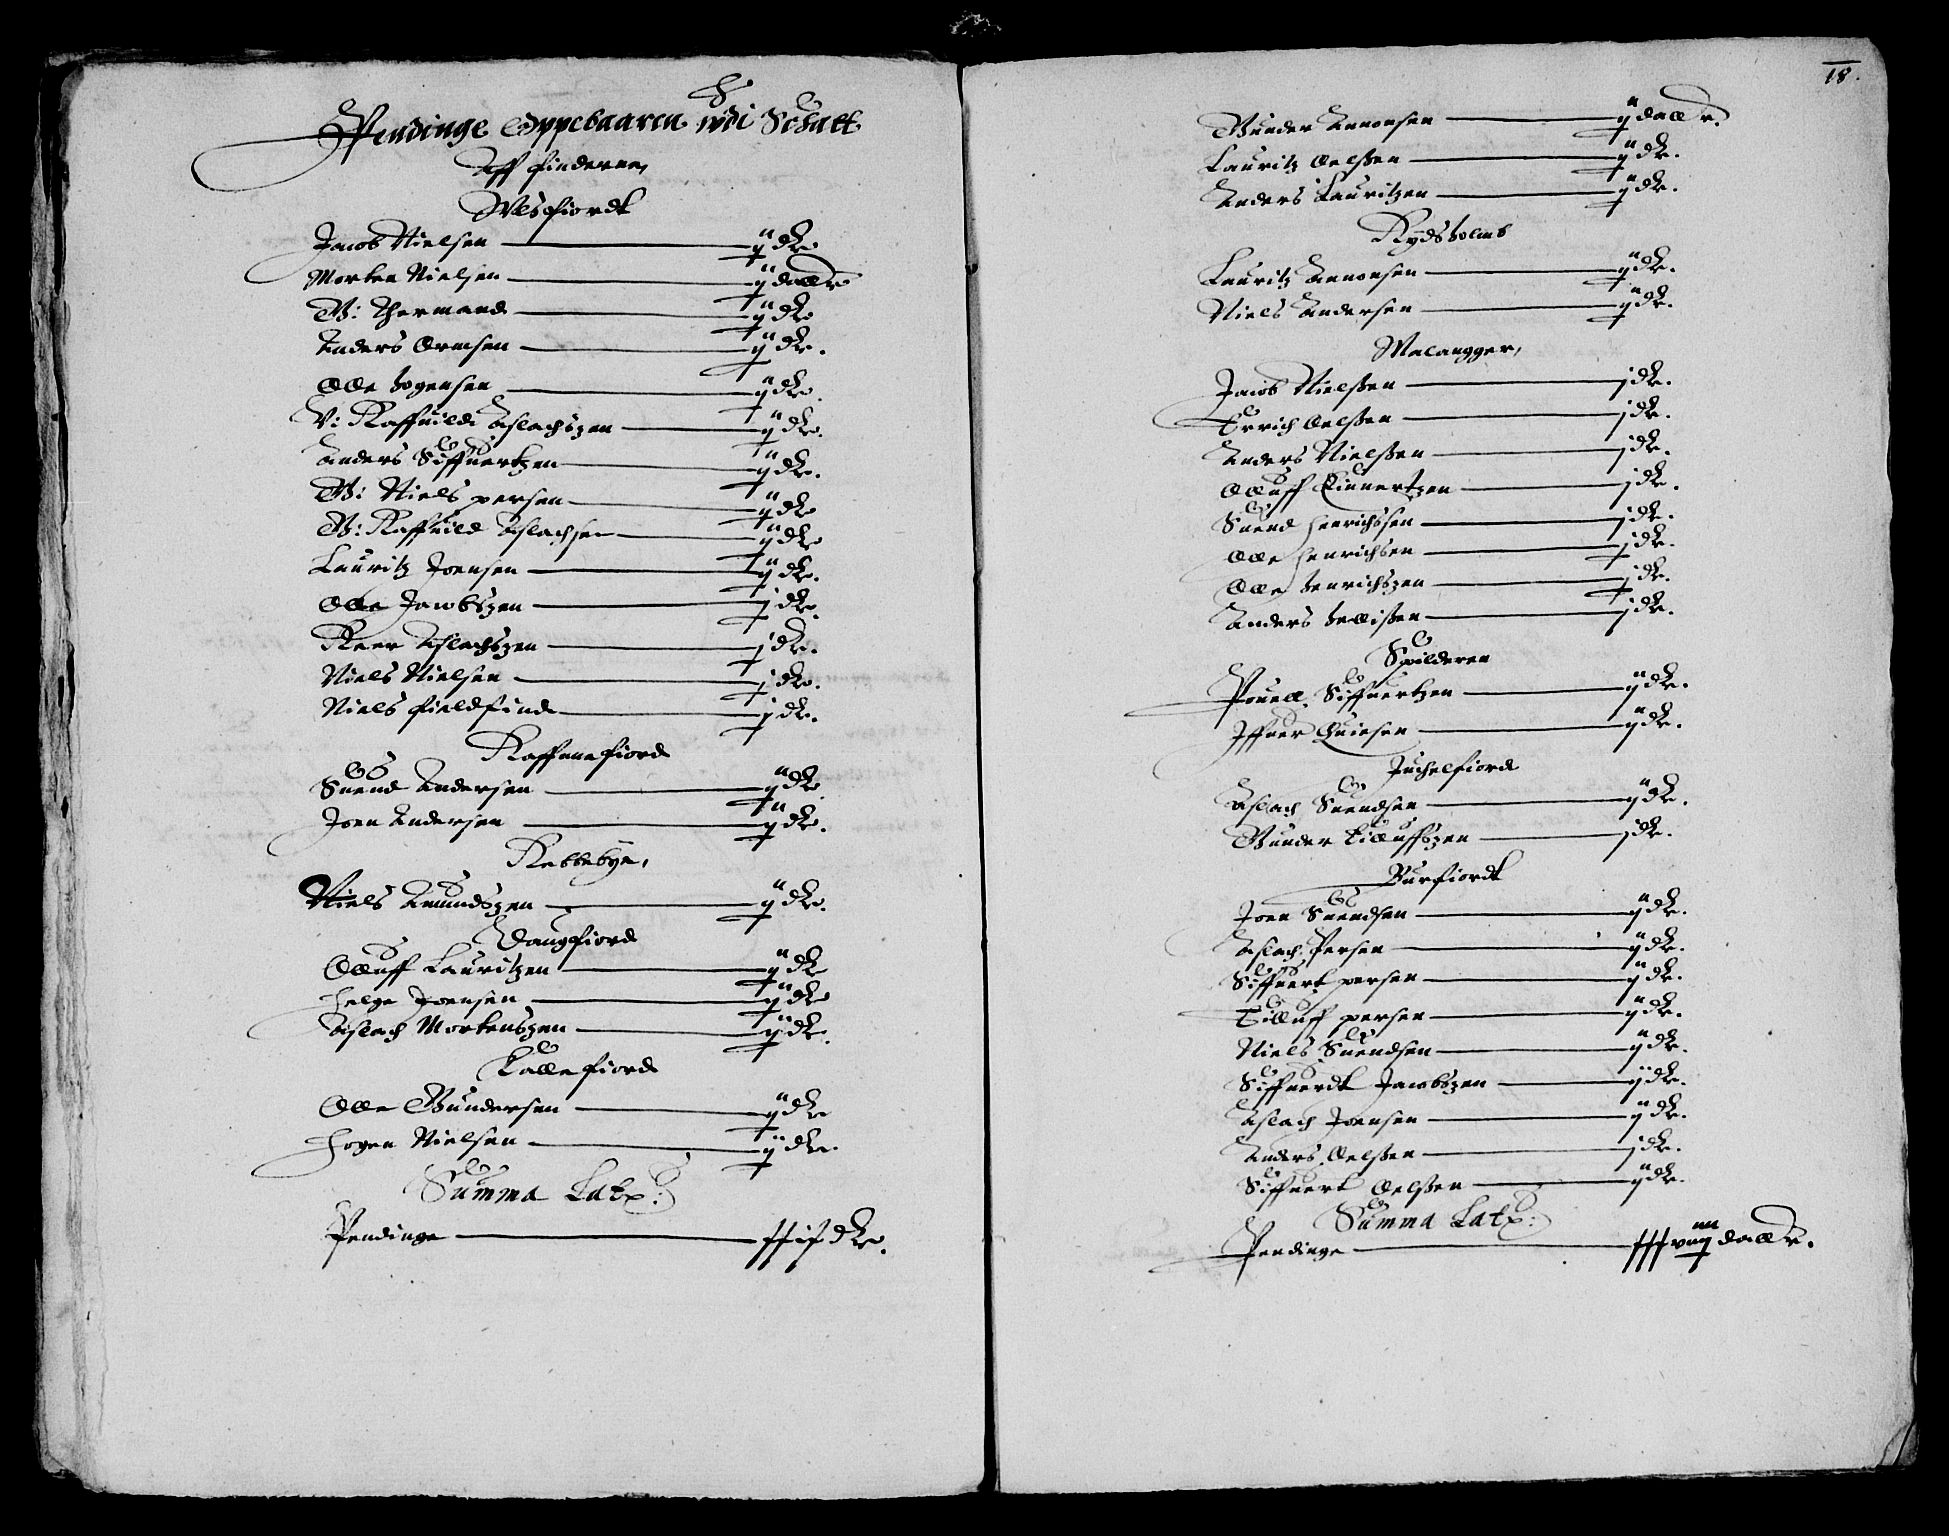 Pendinge Oppebaaren vdi Schatt
Aff finderne,
Wlsfiordt
Jacob Nielsen ij dlr
Morten Nielsen ij dallr
B: Thermand ij dlr
Anders Ormsen ij dlr.
Olle hogensen ij dlr.
V: Raffuild Aslachszen ij dlr.
Anders Siffuertzen ij dlr.
B: Niels persen ij dlr
B: Raffuild Aslachsen ij dlr
Lauritz Joensen ij dlr.
Olle Jacobszen j dlr.
Peer Aslachszen j dlr.
Niels Nielsen j dlr.
Niels fieldfind j dlr.
Raffnnefiord
Suend Andersen ij dlr
Joen Andersen ij dlr.
Rebbebye,
Niels Amundszen ij dlr.
Dangfiord
Olluff Lauritzen ij dlr
Helge Joensen ij dlr
Aslach Mortenszen ij dlr.
Kallefiord
Olle Gundersen ij dlr
Hogen Nielsen ij dlr.
Summa Latr:
Pendinge dlr.
18.
Gunder Amonsen ij dallr.
Lauritz Oelssen ij dlr.
Anders Lauritzen ij dlr.
Rydsholmb
Lauritz Amonsen ij dlr.
Niels Andersen ij dlr.
Malangger,
Jacob Nielssen j dlr.
Erich Oelssen j dlr.
Anders Nielssen j dlr.
Olluff Einnertzen j dlr.
Suend Henrichssen j dlr.
Olle Henrichsen j dlr.
Olle Henrichszen j dlr.
Anders hellissen j dlr.
Spilderen
Pouell Siffuertzen ij dlr.
Iffuer Quiesen ij dlr.
Juchelfiord
Aslach Suendsen ij dlr.
Gunder Tilluffszen j dlr.
Burfiordt
Joen Suendsen ij dlr.
Aslach Persen ij dlr.
Siffuert persen ij dlr.
Tilluff persen ij dlr.
Niels Suendsen ij dlr.
Siffuerdt Jacobszen ij dlr.
Aslach Joensen ij dlr.
Anders Oelssen j dlr.
Siffuert Oelssen ij dlr.
Summa Latr:
Pendinge dallr.